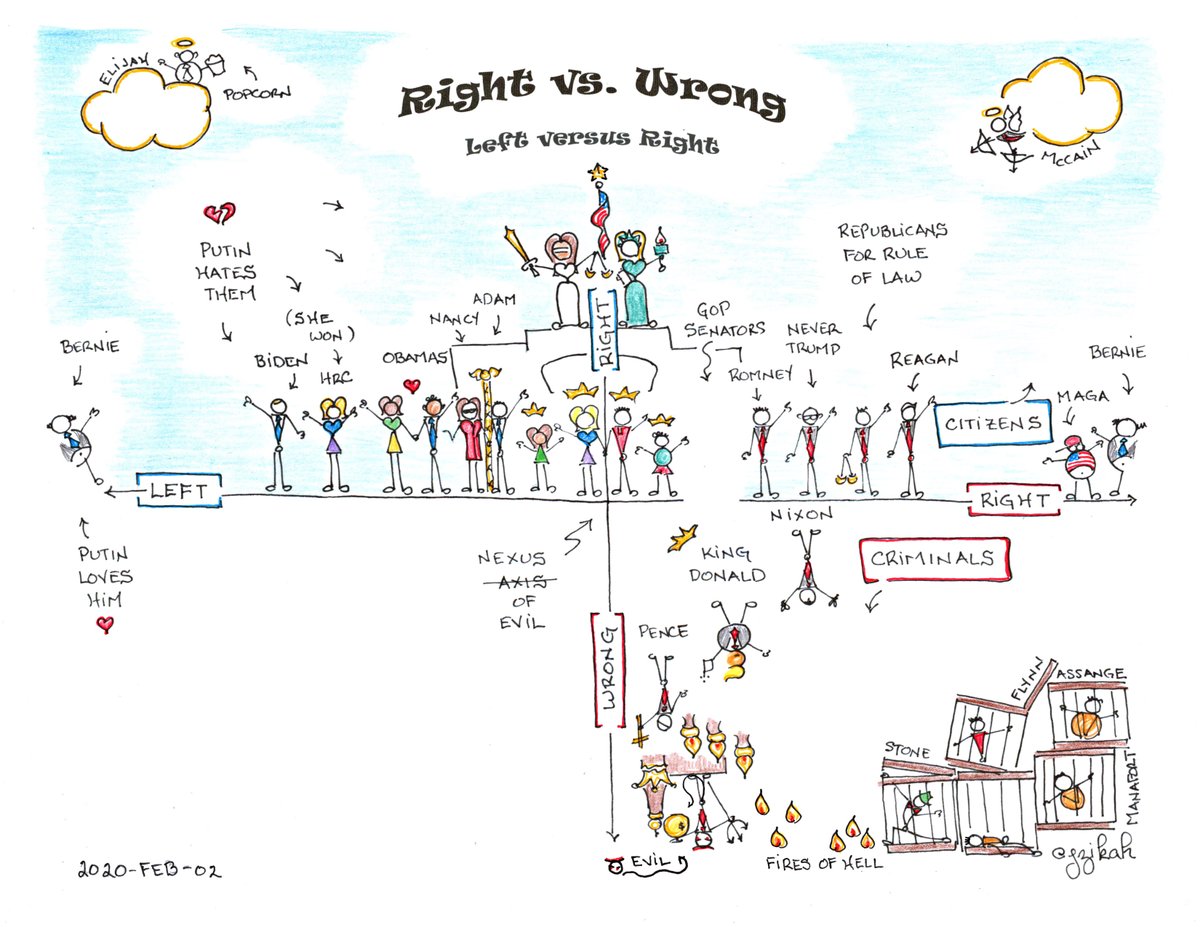 Right vs. Wrong
Left versus Right
ELIJAH
POPCORN
McCAIN
PUTIN
HATES
THEM
(SHE
WON)
HRC
BIDEN
BERNIE
OBAMAS
NANCY
ADAM
RIGHT
GOP
SENATORS
ROMNEY
NEVER
TRUMP
REPUBLICANS
FOR RULE
OF LAW
REAGAN
CITIZENS
MAGA
BERNIE
LEFT
RIGHT
PUTIN
LOVES
HIM
NEXUS
AXIS
OF
EVIL
KING
DONALD
NIXON
CRIMINALS
PENCE
WRONG
EVIL
$
FIRES OF HELL
STONE
FLYNN
ASSANGE
MANAFORT
@gzikah
2020-FEB-02